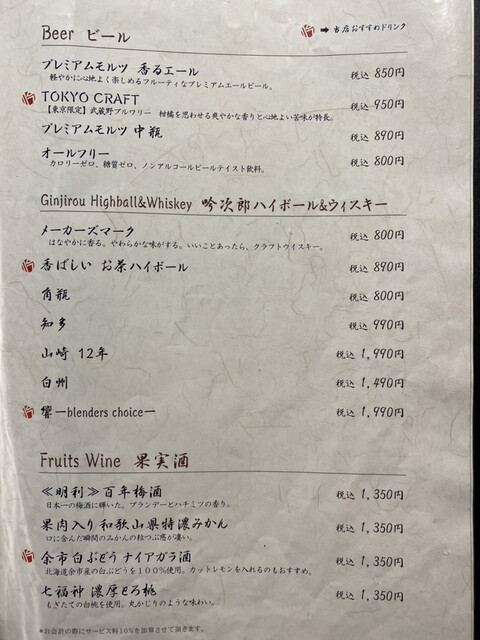 Beer ビール
➡ 当店おすすめドリンク
プレミアムモルツ 香るエール 税込 850円
軽やかに心地よく楽しめるフルーティなプレミアムエールビール。
TOKYO CRAFT 税込 950円
【東京限定】武蔵野ブルワリー 柑橘を思わせる爽やかな香りと心地よい苦味が特長。
プレミアムモルツ 中瓶 税込 890円
オールフリー 税込 800円
カロリーゼロ、糖質ゼロ、ノンアルコールビールテイスト飲料。
Ginjirou Highball&Whiskey 吟次郎ハイボール&ウィスキー
メーカーズマーク 税込 800円
はなやかに香る。やわらかな味がする。いいことあったら、クラフトウイスキー。
香ばしい お茶ハイボール 税込 890円
角瓶 税込 800円
知多 税込 990円
山崎 12年 税込 1,990円
白州 税込 1,490円
響ーblenders choiceー 税込 1,990円
Fruits Wine 果実酒
≪明利≫百年梅酒 税込 1,350円
日本一の梅酒に輝いた。ブランデーとハチミツの香り。
果肉入り和歌山県特濃みかん 税込 1,350円
口に含んだ瞬間のみかんの粒つぶ感が凄い。
余市白ぶどう ナイアガラ酒 税込 1,350円
北海道余市産の白ぶどうを100%使用。カットレモンを入れるのもおすすめ。
七福神 濃厚とろ桃 税込 1,350円
もぎたての白桃を使用。丸かじりのような味わい。
*お会計の際にサービス料10%を加算させて頂きます。